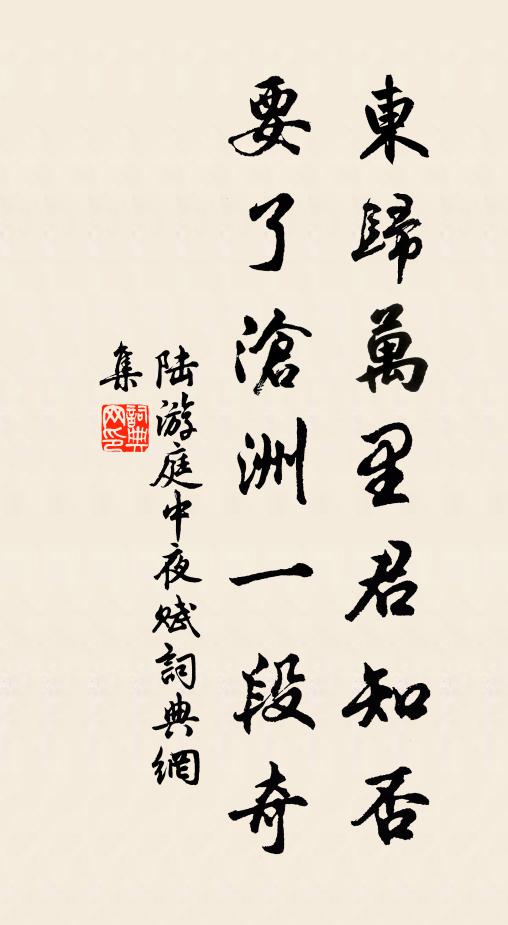 東歸萬里君知否
要了滄洲一段奇
陸游庭中夜賦詞典網
集
詞典网印